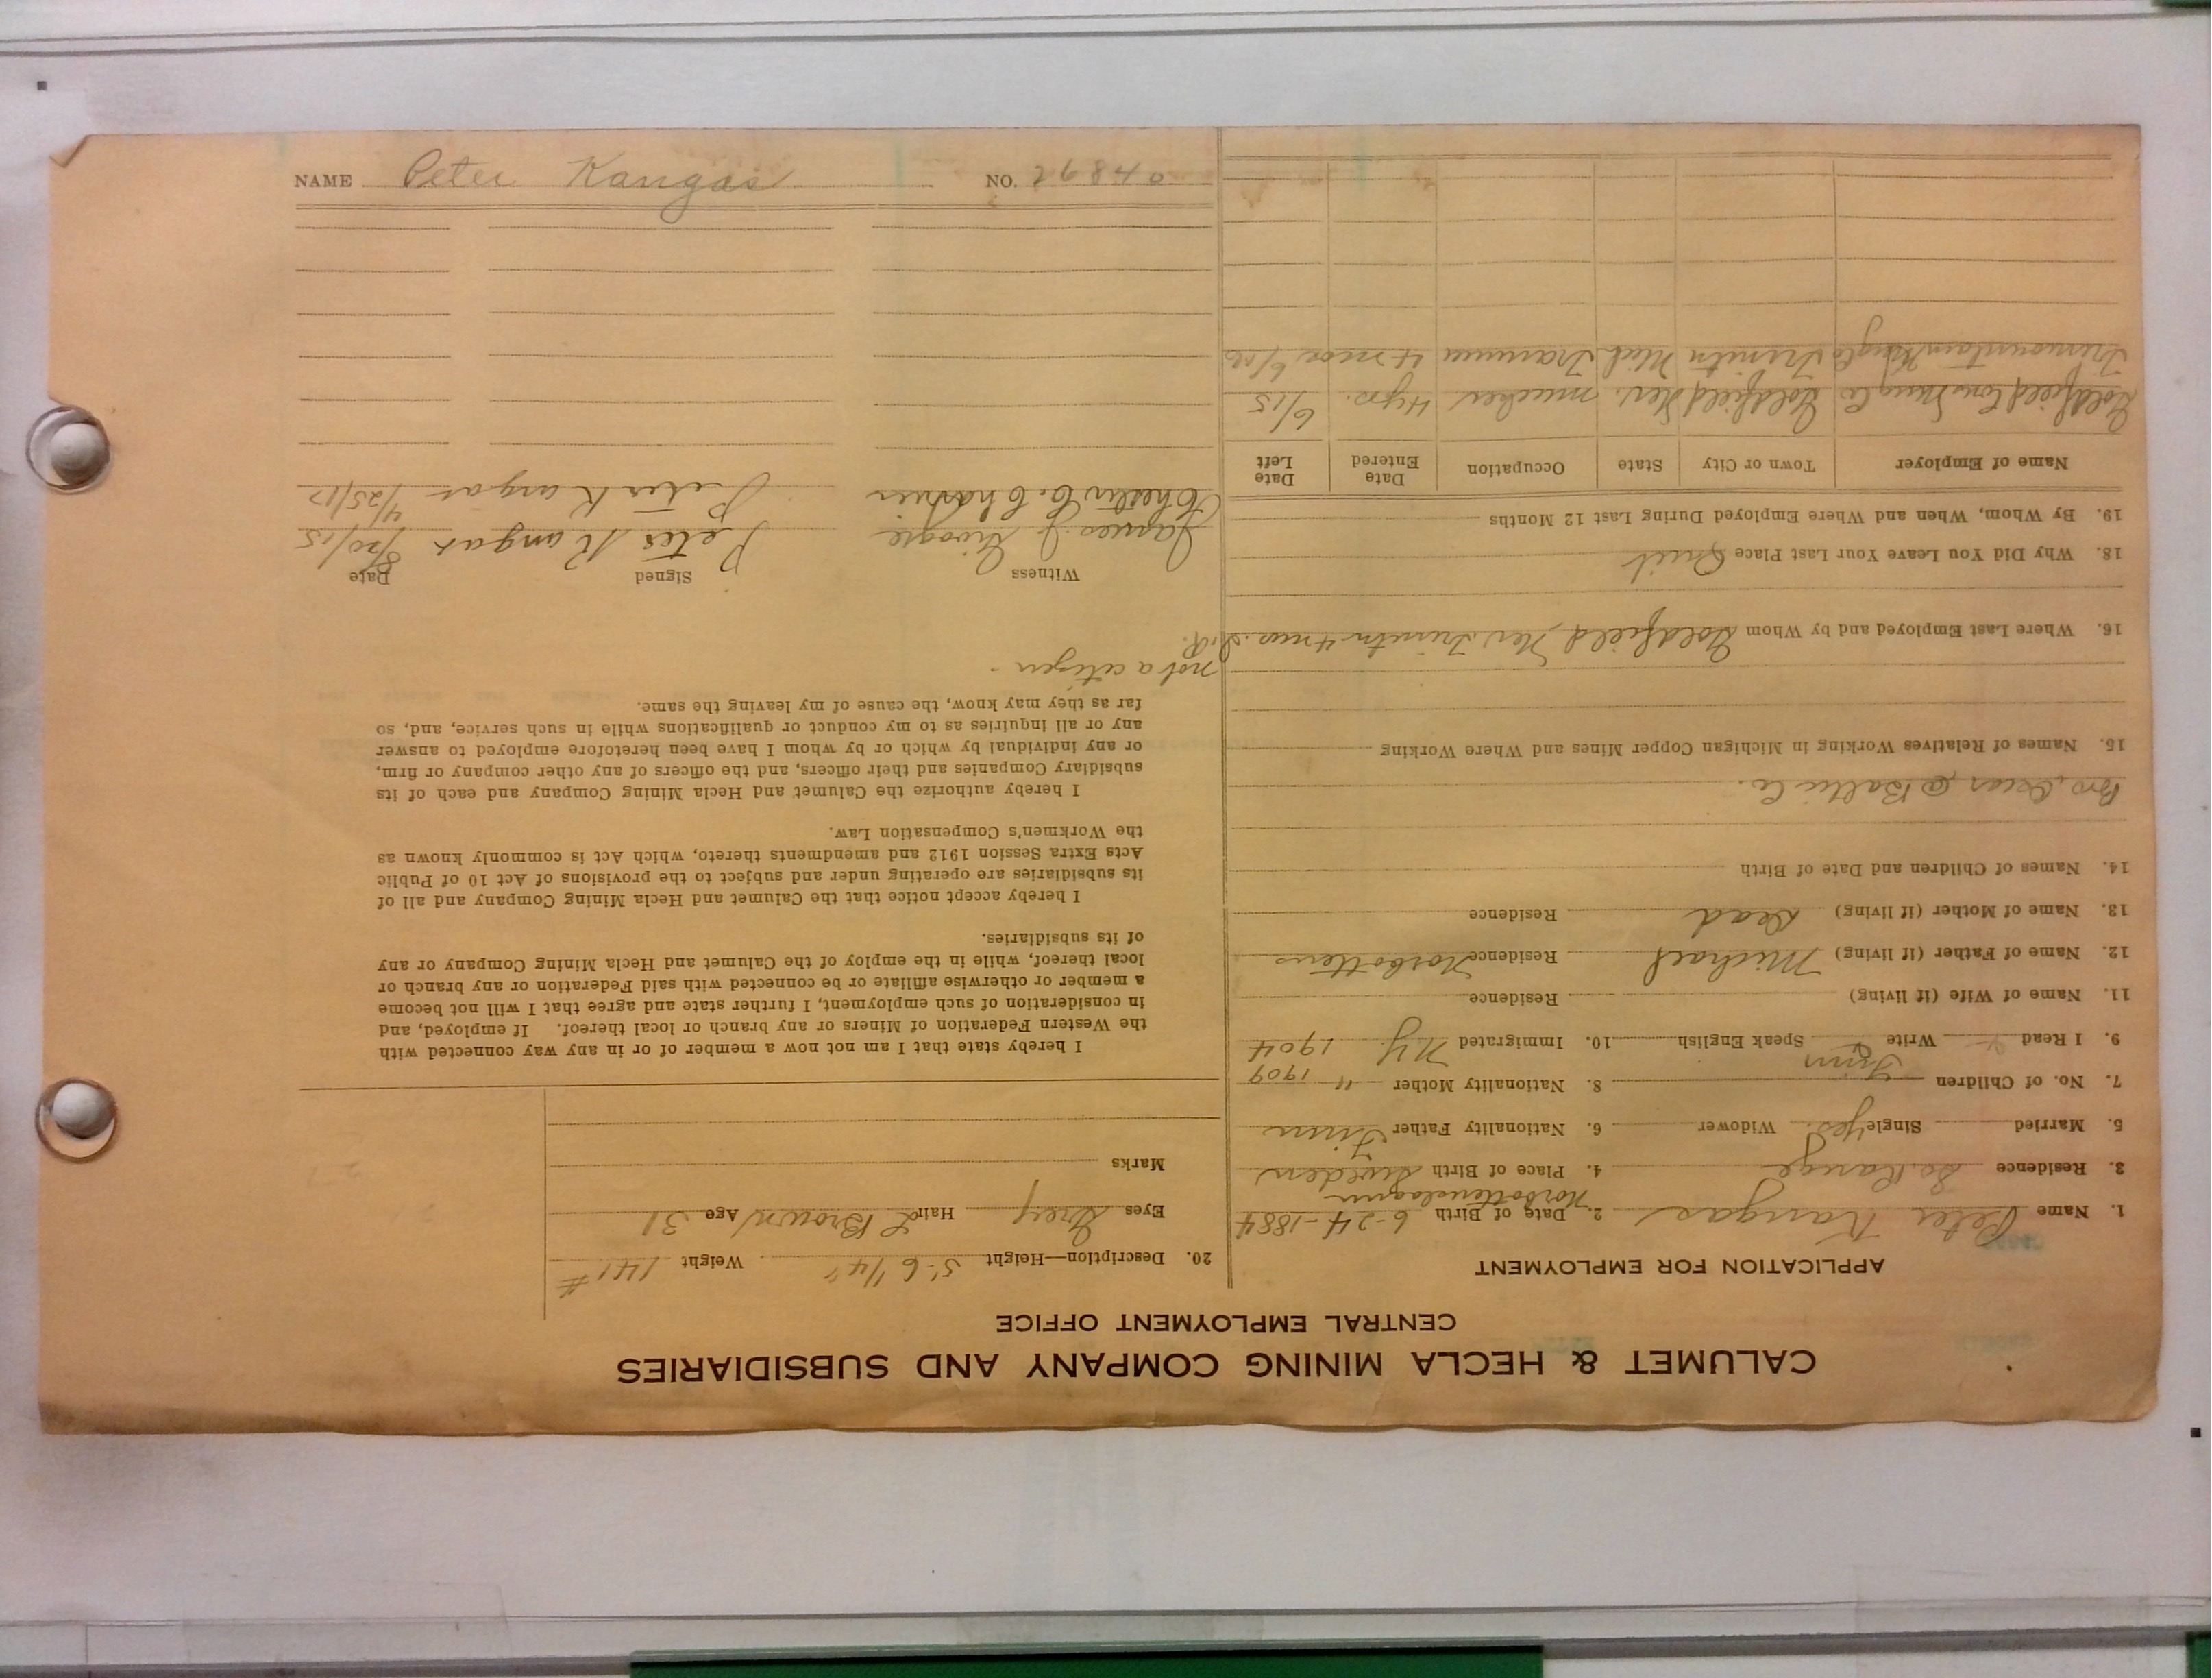 CALUMET & HECLA MINING COMPANY AND SUBSIDIARIES
CENTRAL EMPLOYMENT OFFICE
APPLICATION FOR EMPLOYMENT
1. Name Peter Kangas 2. Date of Birth 6-24-1884
3. Residence So. Range 4. Place of Birth Norbottenslagun Sweden
5. Married Single Yes. Widower 6. Nationality Father Finn
7. No. of Children 8. Nationality Mother " 1909
9. I Read Write Speak English Finn 10. Immigrated N.Y. 1904
11. Name of Wife (if living) Residence
12. Name of Father (if living) Michael Residence Norbottens
13. Name of Mother (if living) Dead Residence
14. Names of Children and Date of Birth
Bro, Oscar @ Baltic Co.
15. Names of Relatives Working in Michigan Copper Mines and Where Working
16. Where Last Employed and by Whom Goldfield Nev. Trimtn 4 mos.
18. Why Did You Leave Your Last Place Quit
19. By Whom, When and Where Employed During Last 12 Months
Name of Employer Town or City State Occupation Date Entered Date Left
Goldfield Cons Mng Co Goldfield Nev. mucker 4 yrs. 6/15
Trimountain Mng Co Trimtn Mich Trammer 4 mos
20. Description—Height 5'-6 1/4" Weight 141 #
Eyes Grey Hair L Brown Age 31
Marks
I hereby state that I am not now a member of or in any way connected with
the Western Federation of Miners or any branch or local thereof. If employed, and
in consideration of such employment, I further state and agree that I will not become
a member or otherwise affiliate or be connected with said Federation or any branch or
local thereof, while in the employ of the Calumet and Hecla Mining Company or any
of its subsidiaries.
I hereby accept notice that the Calumet and Hecla Mining Company and all of
its subsidiaries are operating under and subject to the provisions of Act 10 of Public
Acts Extra Session 1912 and amendments thereto, which Act is commonly known as
the Workmen's Compensation Law.
I hereby authorize the Calumet and Hecla Mining Company and each of its
subsidiary Companies and their officers, and the officers of any other company or firm,
or any individual by which or by whom I have been heretofore employed to answer
any or all inquiries as to my conduct or qualifications while in such service, and, so
far as they may know, the cause of my leaving the same.
not a citizen -
Witness Signed Date
James J. Peter Kangas 8/20/15
Chester C. Peter Kangas 4/25/17
NAME Peter Kangas NO. 26840